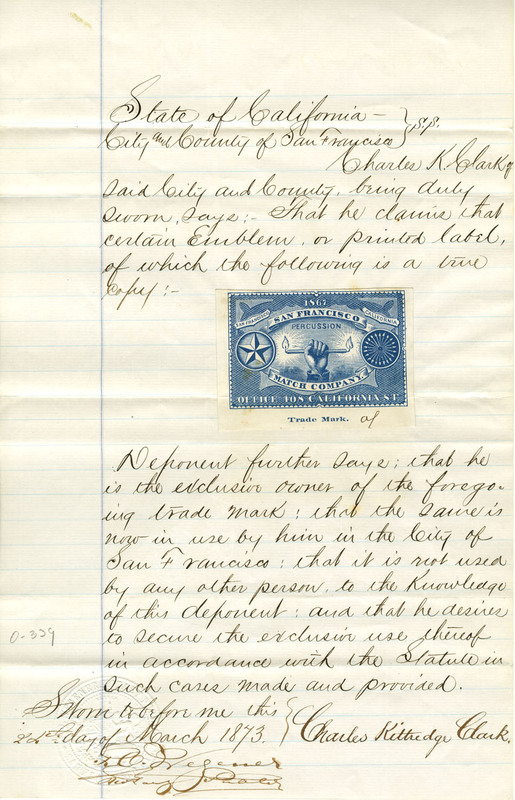 State of California —
City and County of San Francisco } S.S.
Charles K. Clark of
said City and County, being duly
sworn, says:- That he claims that
certain Emblem, or printed label,
of which the following is a true
Copy:-
1867
SAN FRANCISCO CALIFORNIA
SAN FRANCISCO
PERCUSSION
MATCH COMPANY.
OFFICE 408 CALIFORNIA ST.
Trade Mark. of
Deponent further says; that he
is the exclusive owner of the forego-
ing trade mark; that the same is
now in use by him in the City of
San Francisco; that it is not used
by any other person, to the knowledge
of this deponent; and that he desires
to secure the exclusive use thereof
in accordance with the Statute in
such cases made and provided.
0-339
Sworn to before me this
day of March 1873. } Charles Kittredge Clark.
Notary Public